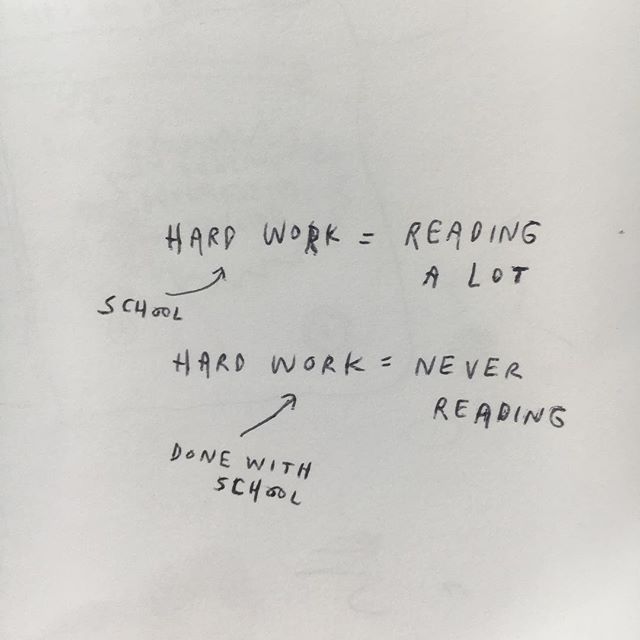 HARD WORK = READING
A LOT
SCHOOL
HARD WORK = NEVER
READING
DONE WITH
SCHOOL